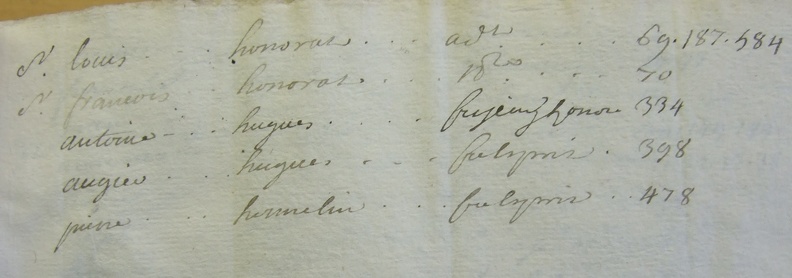 Sr. louis . . . honorat . . . adt . . . . 69.187.584
Sr. francois . . honorat . . . . . . 70
antoine . . hugues . . . . honore 334
augier . . . hugues . . . 398
pierre . . . hermelin . . . 478